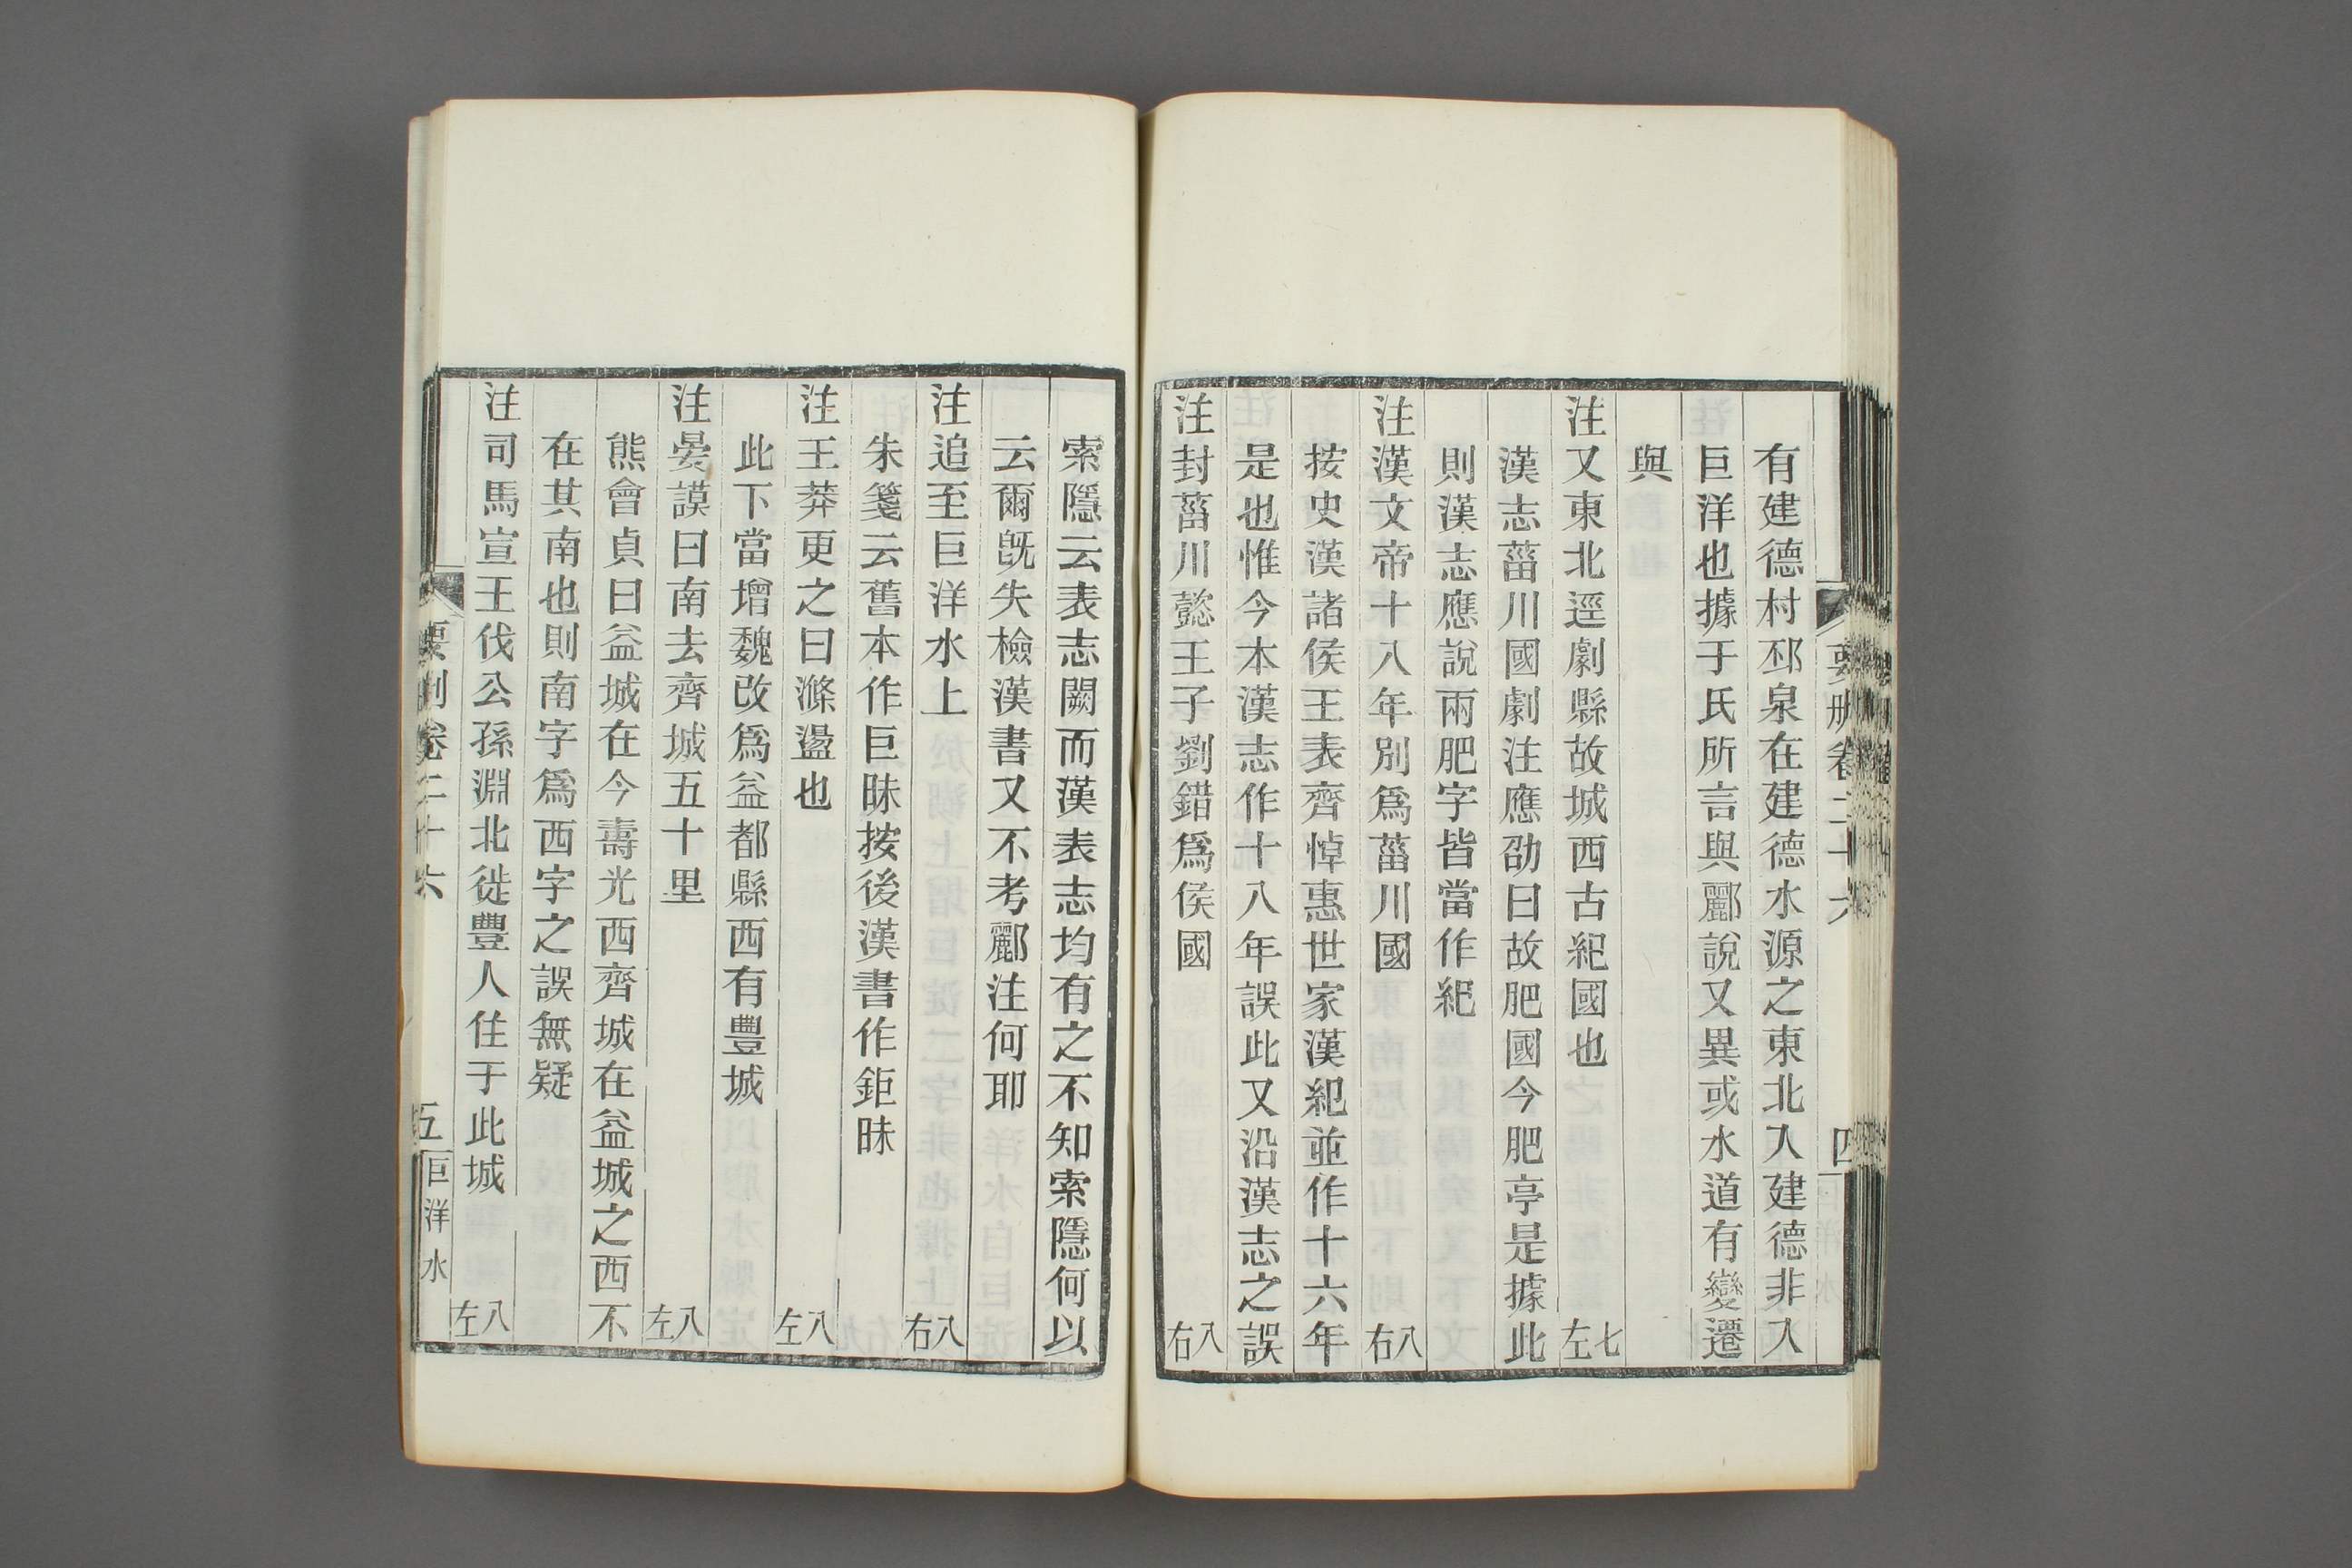 有建德村邳泉在建德水源之東北入建德非入
巨洋也據于氏所言與酈說又異或水道有變遷
與
注又東北逕劇縣故城西古紀國也 七左
漢志菑川國劇注應劭曰故肥國今肥亭是據此
則漢志應說兩肥字皆當作紀
注漢文帝十八年別爲菑川國 八右
按史漢諸侯王表齊悼惠世家漢紀並作十六年
是也惟今本漢志作十八年誤此又沿漢志之誤
注封菑川懿王子劉錯爲侯國 八右
索隱云表志闕而漢表志均有之不知索隱何以
云爾旣失檢漢書又不考酈注何耶
注追至巨洋水上 八右
朱箋云舊本作巨昧按後漢書作鉅昧
注王莽更之曰滌盪也 八左
此下當增魏改爲益都縣西有豐城
注晏謨曰南去齊城五十里 八左
熊會貞曰益城在今壽光西齊城在益城之西不
在其南也則南字爲西字之誤無疑
注司馬宣王伐公孫淵北徙豐人住于此城 八左
要刪卷二十六 五 巨洋水